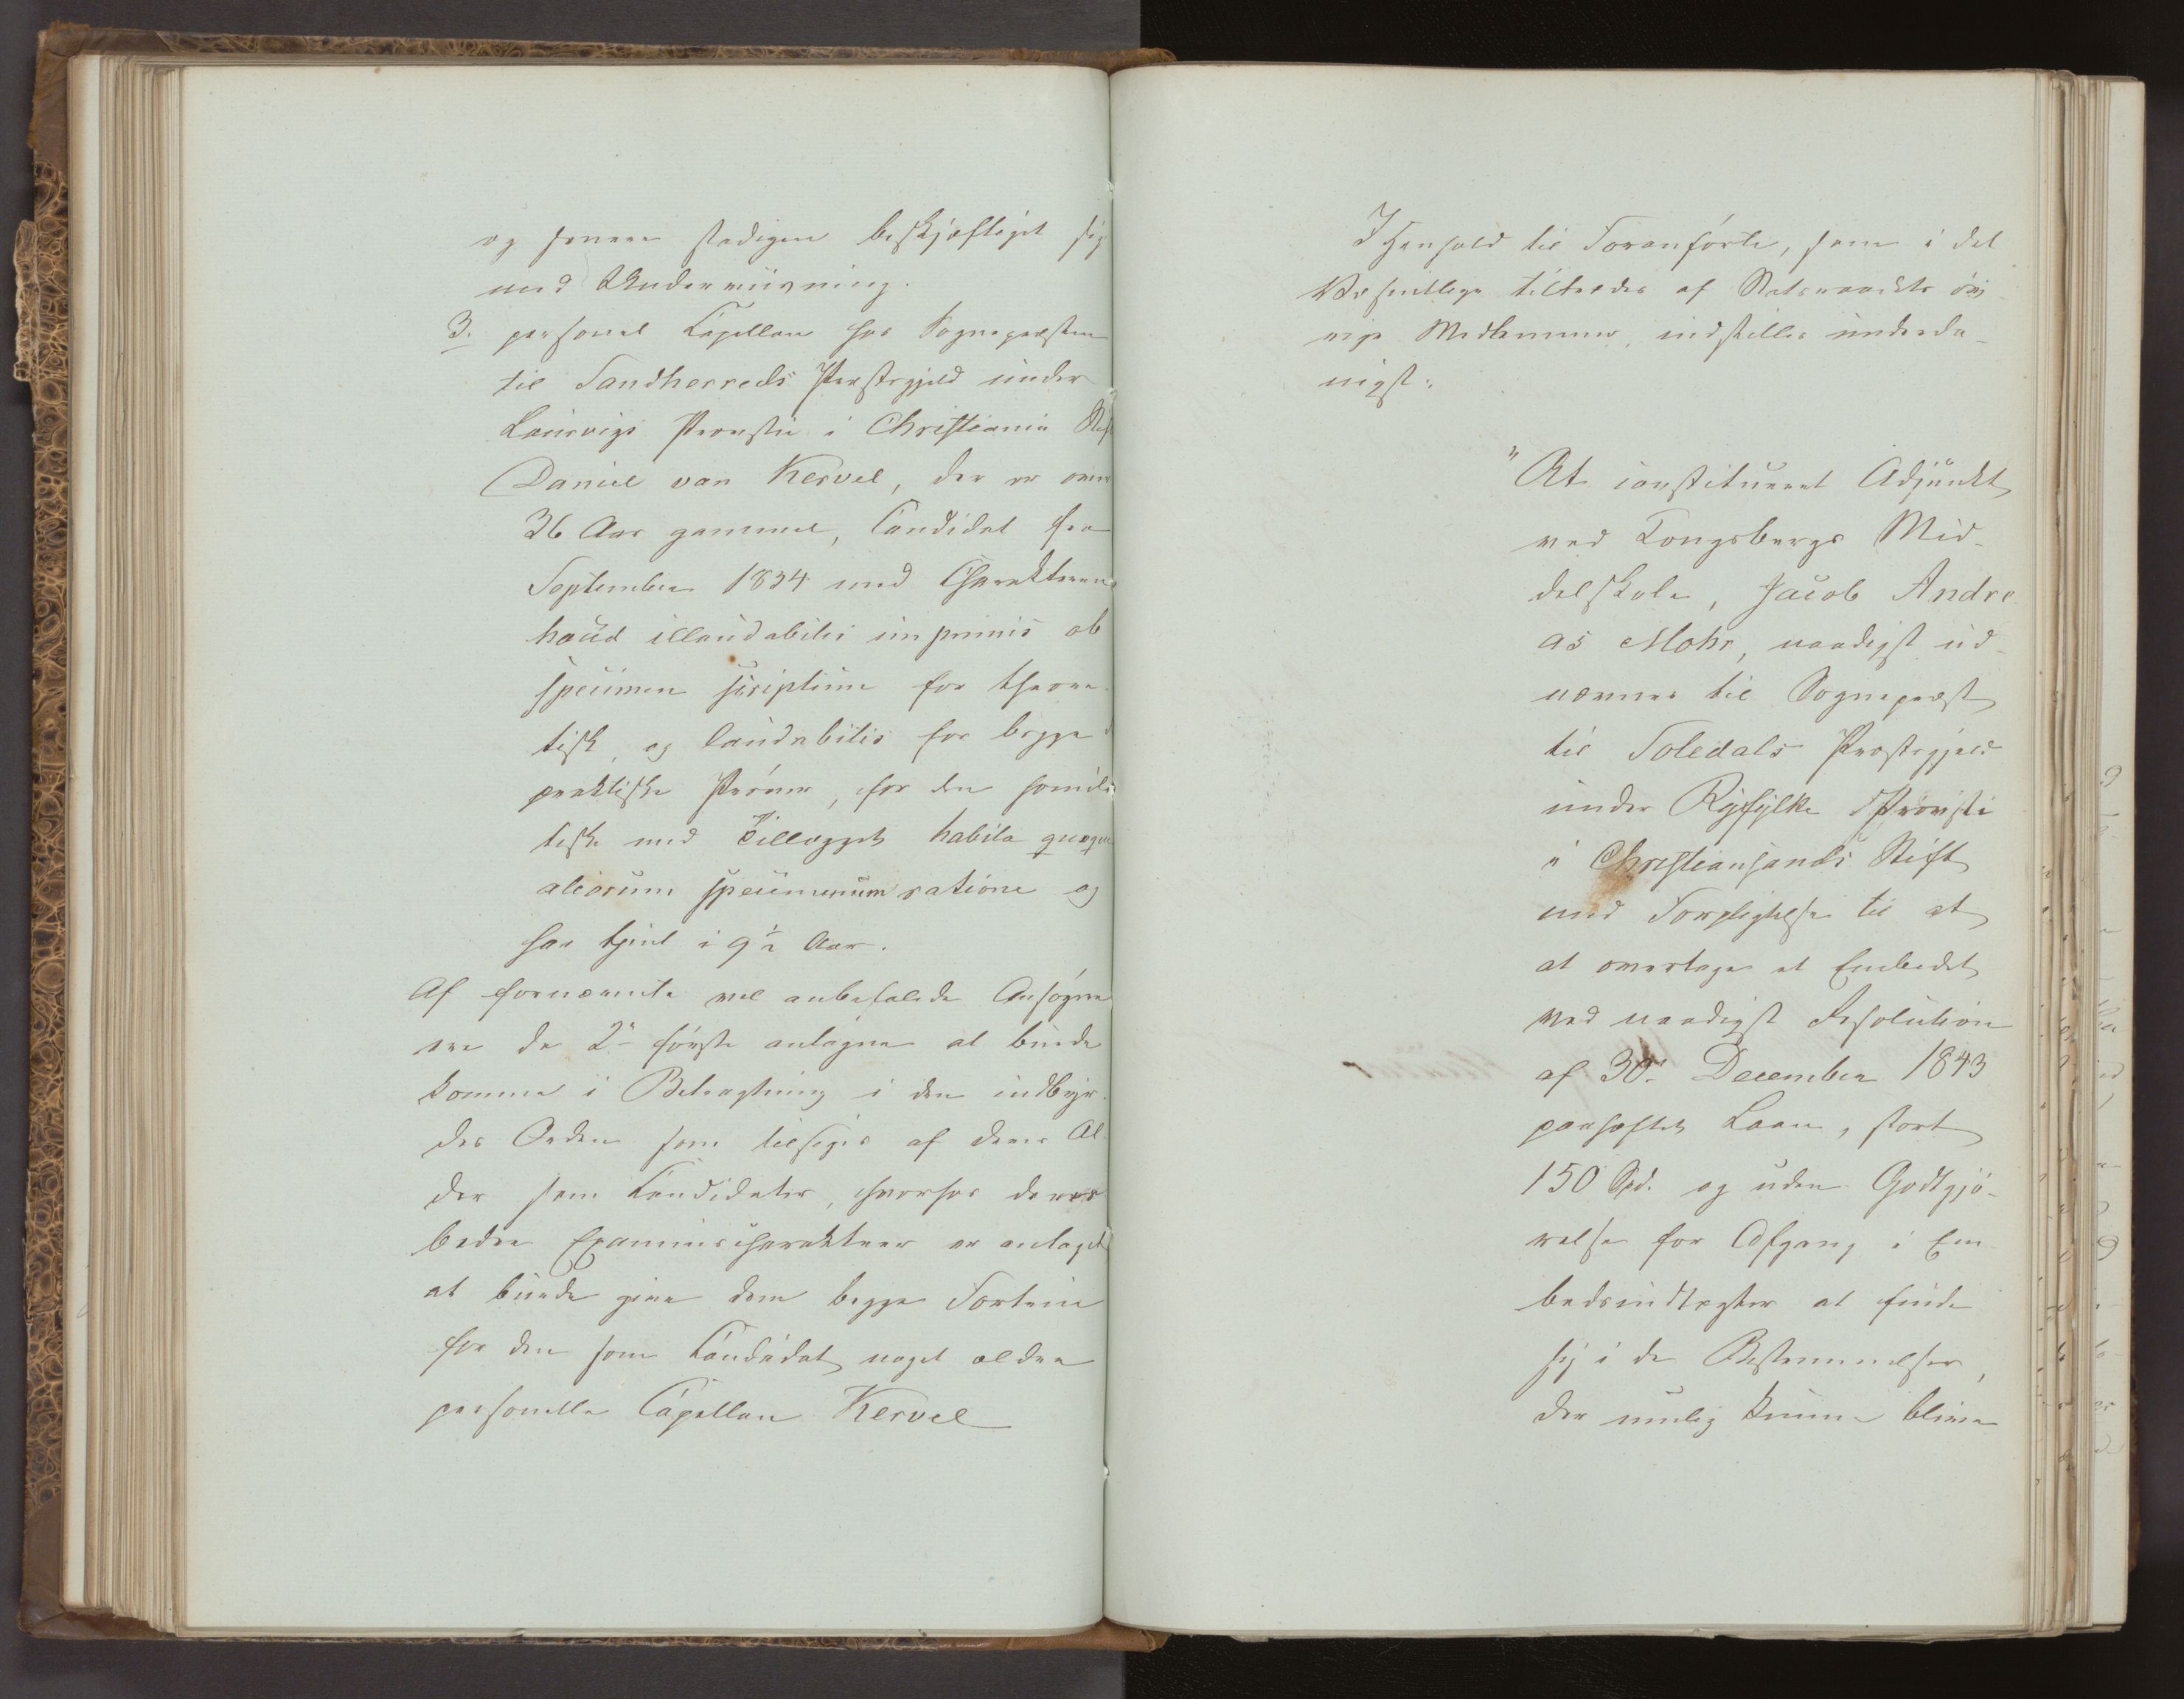 og senere stadigen beskjæftiget sig
med Underviisning.
3. personel Capellan hos Sognepræsten
til Sandherreds Præstegjeld under
Laurvigs Provstie i Christiania Stift
Daniel van Kervel, der er over
36 Aar gammel, Candidat fra
September 1834 med Charakteren
haud illaudabilis imprimis ob
specimen scriptum for theore-
tisk, og laudabilis for begge
praktiske Prøver, for den homile
tiske med Tillægget habita quoque
aliorum speciminum ratione og
har tjent i 9½ Aar.
Af fornævnte vel anbefalede Ansøgere
ere de 2de første antagne at burde
komme i Betragtning i den indbyr-
des Orden som tilsiges af deres Al-
der som Candidater, hvorhos deres
bedre Examenscharakterer er antaget
at burde give dem begge Fortrin
for den som Candidat noget ældre
personelle Capellan Kervel
I Henhold til Foranførte, som i det
Væsentlige tiltrædes af Statsraadets øv-
rige Medlemmer, indstilles underda-
nigst:
"At constitueret Adjunkt
ved Kongsbergs Mid-
delskole, Jacob Andre
as Mohr, naadigst ud-
nævnes til Sognepræst
til Soledals Præstegjeld
under Ryfylke Provsti
i Christiansands Stift
med Forpligtelse til at
at overtage et Embedet
ved naadigst Resolution
af 30te December 1843
paahæftet Laan, stort
150 Spd. og uden Godtgjø-
relse for Afgang i Em-
bedsindtægter at finde
sig i de Bestemmelser,
der mulig kunne blive